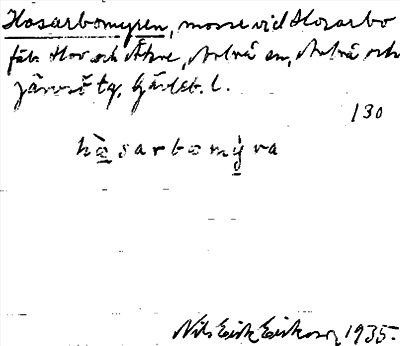 Hosarbomyren, mosse vid Hosarbo
fäb. Hov och Åkre, Arbrå sn, Arbrå och
Järvsö tg, Gävleb. l.
130
hòsarbomỳra
Nils Erik Eriksson, 1935.